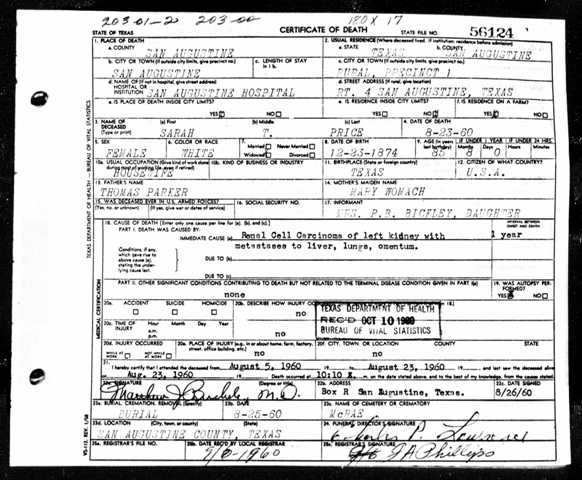 20301-2 203-00 180X 17
STATE OF TEXAS CERTIFICATE OF DEATH STATE FILE NO. 56124
1. PLACE OF DEATH 2. USUAL RESIDENCE (Where deceased lived. If institution: residence before admission)
a. COUNTY SAN AUGUSTINE a. STATE TEXAS b. COUNTY SAN AUGUSTINE
b. CITY OR TOWN (If outside city limits, give precinct no.) c. LENGTH OF STAY in 1 b. c. CITY OR TOWN (If outside city limits, give precinct no.)
SAN AUGUSTINE RURAL, PRECINCT 1
d. NAME OF (If not in hospital, give street address) HOSPITAL OR INSTITUTION SAN AUGUSTINE HOSPITAL d. STREET ADDRESS (If rural, give location) RT. 4 SAN AUGUSTINE, TEXAS
e. IS PLACE OF DEATH INSIDE CITY LIMITS? e. IS RESIDENCE INSIDE CITY LIMITS? f. IS RESIDENCE ON A FARM?
YES NO YES NO YES NO
3. NAME OF DECEASED (Type or print) (a) First (b) Middle (c) Last 4. DATE OF DEATH
SARAH T. PRICE 8-23-60
5. SEX 6. COLOR OR RACE 7. Married Never Married Widowed Divorced 8. DATE OF BIRTH 9. AGE (In years last birthday) IF UNDER 1 YEAR IF UNDER 24 HRS. Months Days Hours Minutes
FEMALE WHITE 12-23-1874 85 8 0
10a. USUAL OCCUPATION (Give kind of work done during most of working life, even if retired) 10b. KIND OF BUSINESS OR INDUSTRY 11. BIRTHPLACE (State or foreign country) 12. CITIZEN OF WHAT COUNTRY?
HOUSEWIFE TEXAS U.S.A.
13. FATHER'S NAME 14. MOTHER'S MAIDEN NAME
THOMAS PARKER MARY WOMACH
15. WAS DECEASED EVER IN U.S. ARMED FORCES? (Yes, no, or unknown) 16. SOCIAL SECURITY NO. 17. INFORMANT
MRS. P.B. BICKLEY, DAUGHTER
18. CAUSE OF DEATH (Enter only one cause per line for (a), (b), and (c).) INTERVAL BETWEEN ONSET AND DEATH
PART I. DEATH WAS CAUSED BY: IMMEDIATE CAUSE (a) Renal Cell Carcinoma of left kidney with 1 year
metastases to liver, lungs, omentum.
Conditions, if any, which gave rise to above cause (a), stating the underlying cause last. DUE TO (b) DUE TO (c)
PART II. OTHER SIGNIFICANT CONDITIONS CONTRIBUTING TO DEATH BUT NOT RELATED TO THE TERMINAL DISEASE CONDITION GIVEN IN PART I(a) 19. WAS AUTOPSY PERFORMED?
none YES NO
20a. ACCIDENT SUICIDE HOMICIDE 20b. DESCRIBE HOW INJURY OCC
no
TEXAS DEPARTMENT OF HEALTH
REC'D OCT 10 1960
BUREAU OF VITAL STATISTICS
20c. TIME OF INJURY Hour Month Day Year a.m. p.m. no
20d. INJURY OCCURRED 20e. PLACE OF INJURY (e.g., in or about home, farm, factory, street, office building, etc.) 20f. CITY, TOWN, OR LOCATION COUNTY STATE
WHILE AT WORK NOT WHILE AT WORK no no
21. I hereby certify that I attended the deceased from August 5, 1960 to August 23, 1960
Aug. 23, 1960 Death occurred at 10:10 m. on the date stated above, and to the best of my knowledge, from the causes stated.
22a. SIGNATURE (Degree or title) 22b. ADDRESS 22c. DATE SIGNED
M.D. Box R San Augustine, Texas. 8/26/60
23a. BURIAL, CREMATION, REMOVAL (Specify) 23b. DATE 23c. NAME OF CEMETERY OR CREMATORY
BURIAL 8-25-60 McRAE
23d. LOCATION (City, town, or county) (State) 24. FUNERAL DIRECTOR'S SIGNATURE
SAN AUGUSTINE COUNTY, TEXAS
25a. REGISTRAR'S FILE NO. 25b. DATE REC'D BY LOCAL REGISTRAR 25c. REGISTRAR'S SIGNATURE
Phillips
TEXAS DEPARTMENT OF HEALTH—BUREAU OF VITAL STATISTICS
MEDICAL CERTIFICATION